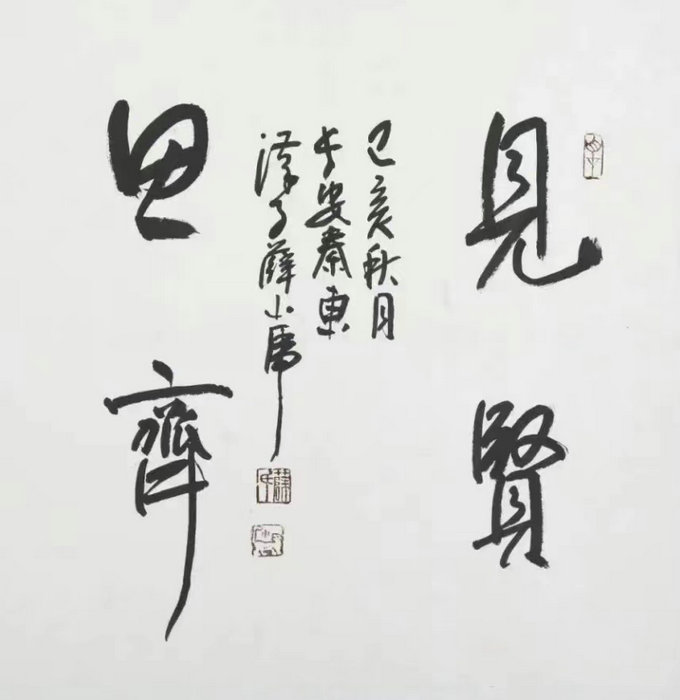 見賢
思齊
己亥秋月
长安秦東
漢子薛小虎